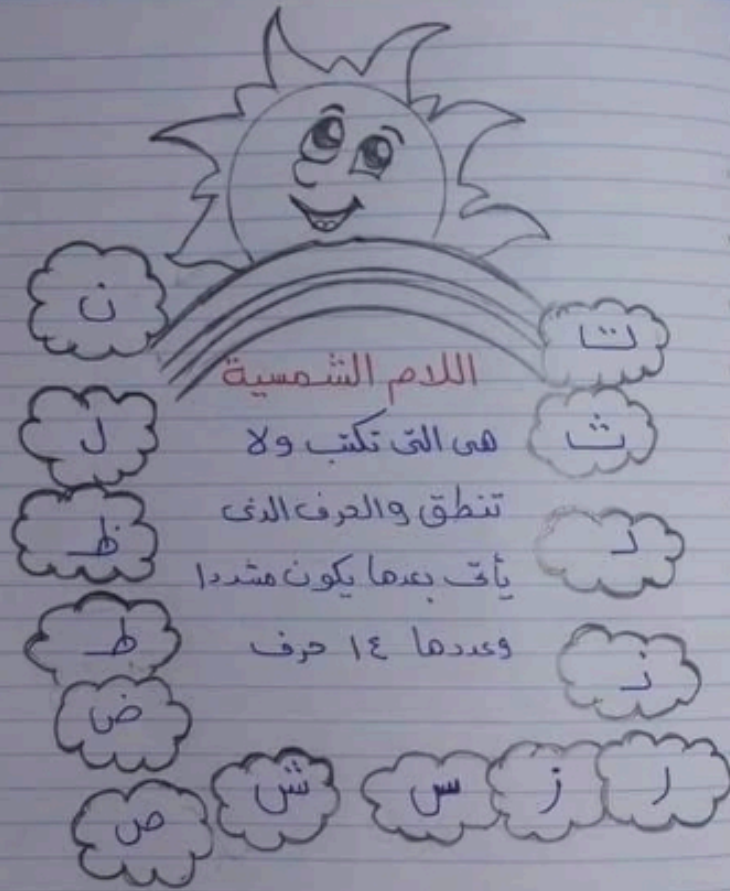 اللام الشمسية
هى التى تكتب ولا
تنطق والحرف الذى
يأتى بعدها يكون مشددا
وعددها ١٤ حرف
ت
ث
د
ذ
ر
ز
س
ش
ص
ض
ط
ظ
ل
ن